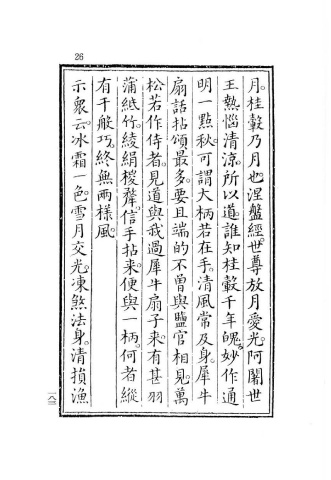 26
月。桂轂乃月也。涅盤經。世尊放月愛光。阿闍世
王熱惱清涼。所以道誰知桂轂千年魄。妙作通
明一點秋。可謂大柄若在手。清風常及身。犀牛
扇話拈頌最多。要且端的不曾與鹽官相見。萬
松若作侍者。見道與我過犀牛扇子來。有甚羽
蒲紙竹。綾絹椶。信手拈來。便與一柄。何者縱
有千般巧。終無兩樣風。
示衆云。冰霜一色。雪月交光。凍煞法身。清損漁
一八三